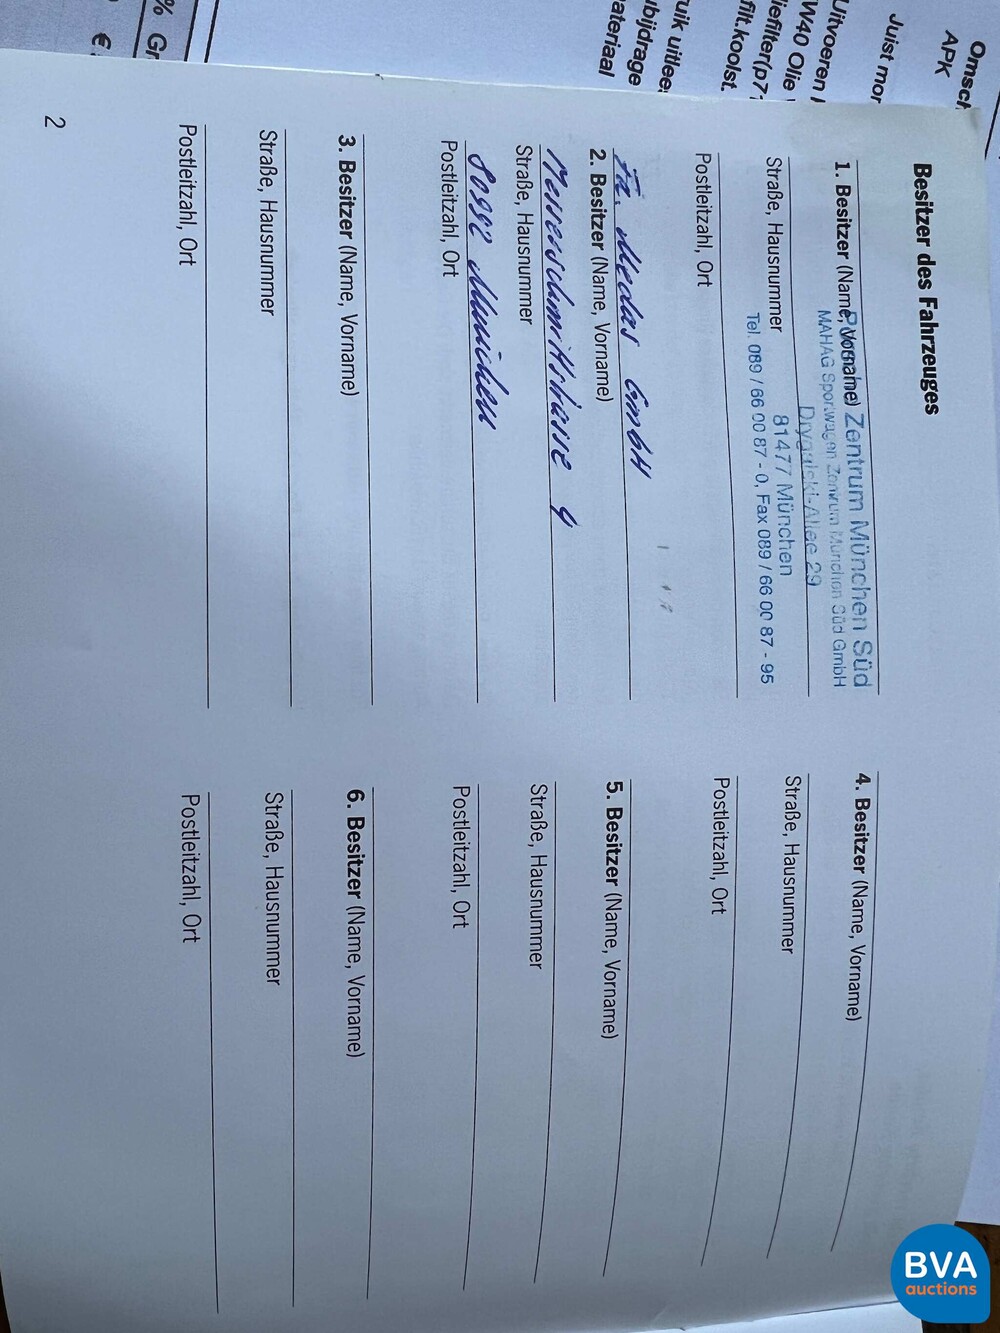 Omsch
APK
Juist mor
Uitvoeren
W40 Olie
iefilter(p7-
filt.koolst.
uik uitlee
bijdrage
ateriaal
% Gr
€
Besitzer des Fahrzeuges
Zentrum München Süd
MAHAG Sportwagen Zentrum München Süd GmbH
1. Besitzer (Name, Vorname)
Drygalski-Allee 29
81477 München
Straße, Hausnummer
Tel. 089 / 66 00 87 - 0, Fax 089 / 66 00 87 - 95
Postleitzahl, Ort
Fa. Medas GmbH
2. Besitzer (Name, Vorname)
Messerschmittstrasse 4
Straße, Hausnummer
80992 München
Postleitzahl, Ort
3. Besitzer (Name, Vorname)
Straße, Hausnummer
Postleitzahl, Ort
2
4. Besitzer (Name, Vorname)
Straße, Hausnummer
Postleitzahl, Ort
5. Besitzer (Name, Vorname)
Straße, Hausnummer
Postleitzahl, Ort
6. Besitzer (Name, Vorname)
Straße, Hausnummer
Postleitzahl, Ort
BVA
auctions